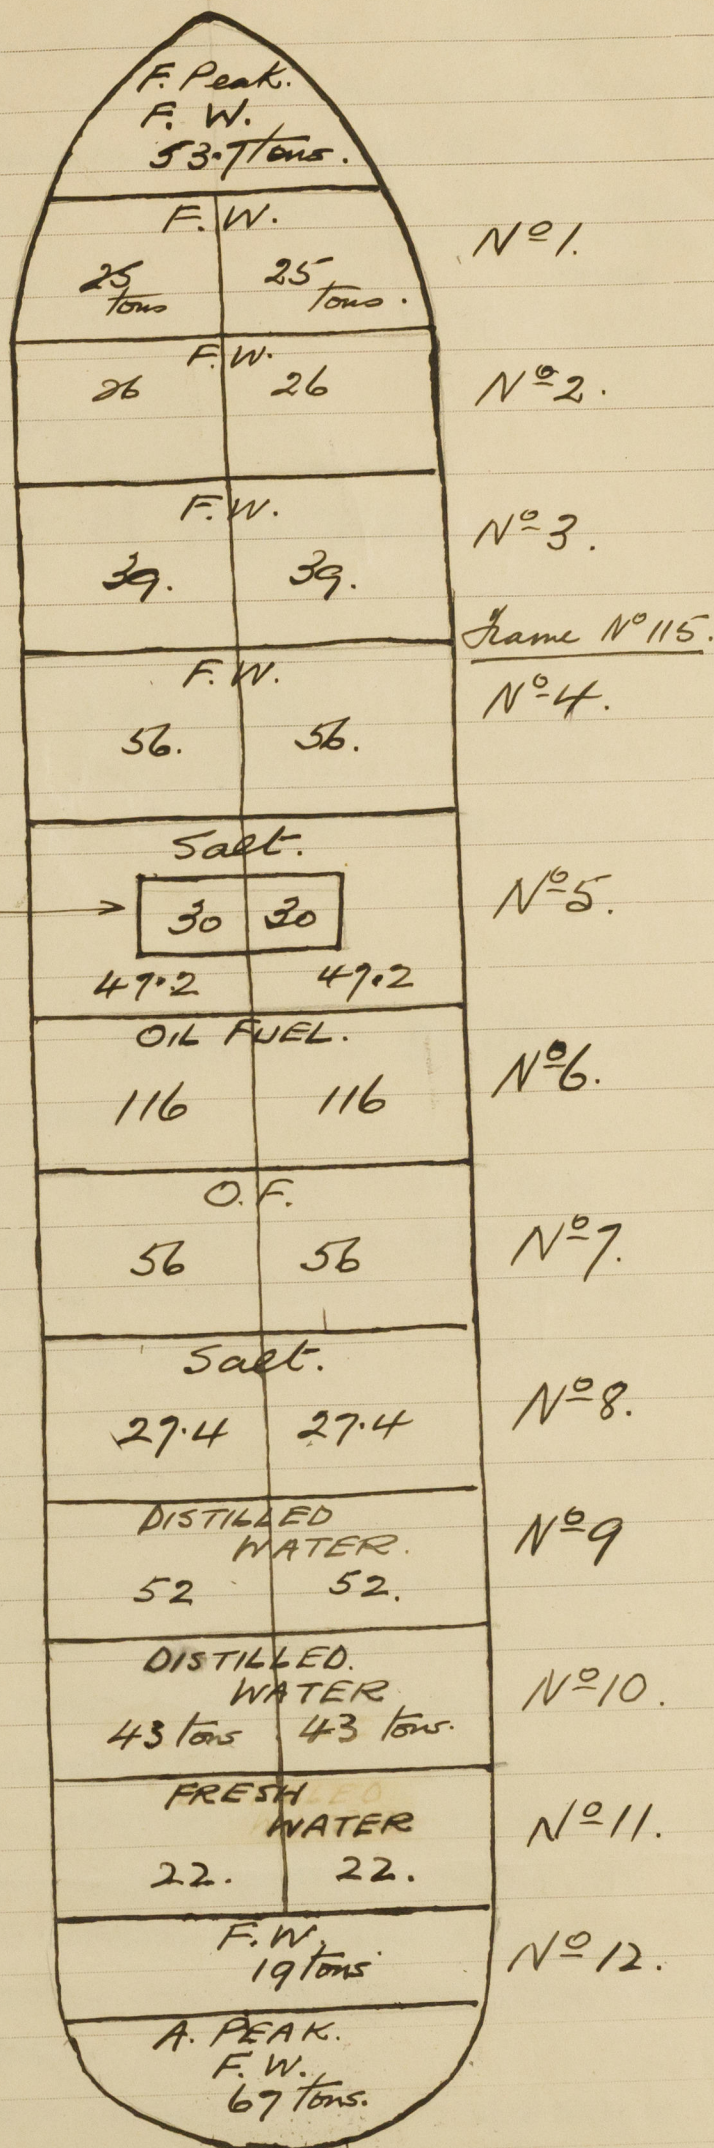 F. Peak.
F. W.
53.7 tons.
F. W.
25 tons 25 tons.
Nº 1.
F. W.
26 26
Nº 2.
F. W.
39. 39.
Nº 3.
Frame Nº 115.
F. W.
56. 56.
Nº 4.
Salt.
30 30
47.2 47.2
Nº 5.
OIL FUEL.
116 116
Nº 6.
O. F.
56 56
Nº 7.
Salt.
27.4 27.4
Nº 8.
DISTILLED
WATER.
52 52.
Nº 9
DISTILLED.
WATER
43 tons 43 tons.
Nº 10.
FRESH
WATER
22. 22.
Nº 11.
F. W.
19 tons
Nº 12.
A. PEAK.
F. W.
67 tons.